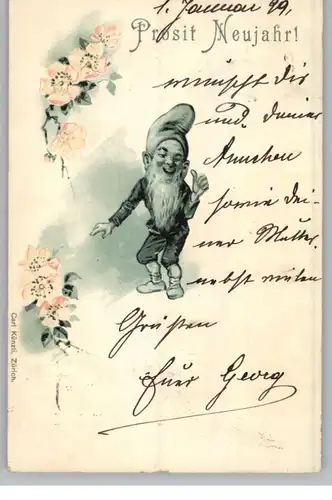 1. Januar 99,
Prosit Neujahr!
wünscht dir
und deiner
Annchen
sowie dei-
ner Mutter
nebst vielen
Grüßen
Euer Georg
Carl Künzli, Zürich.